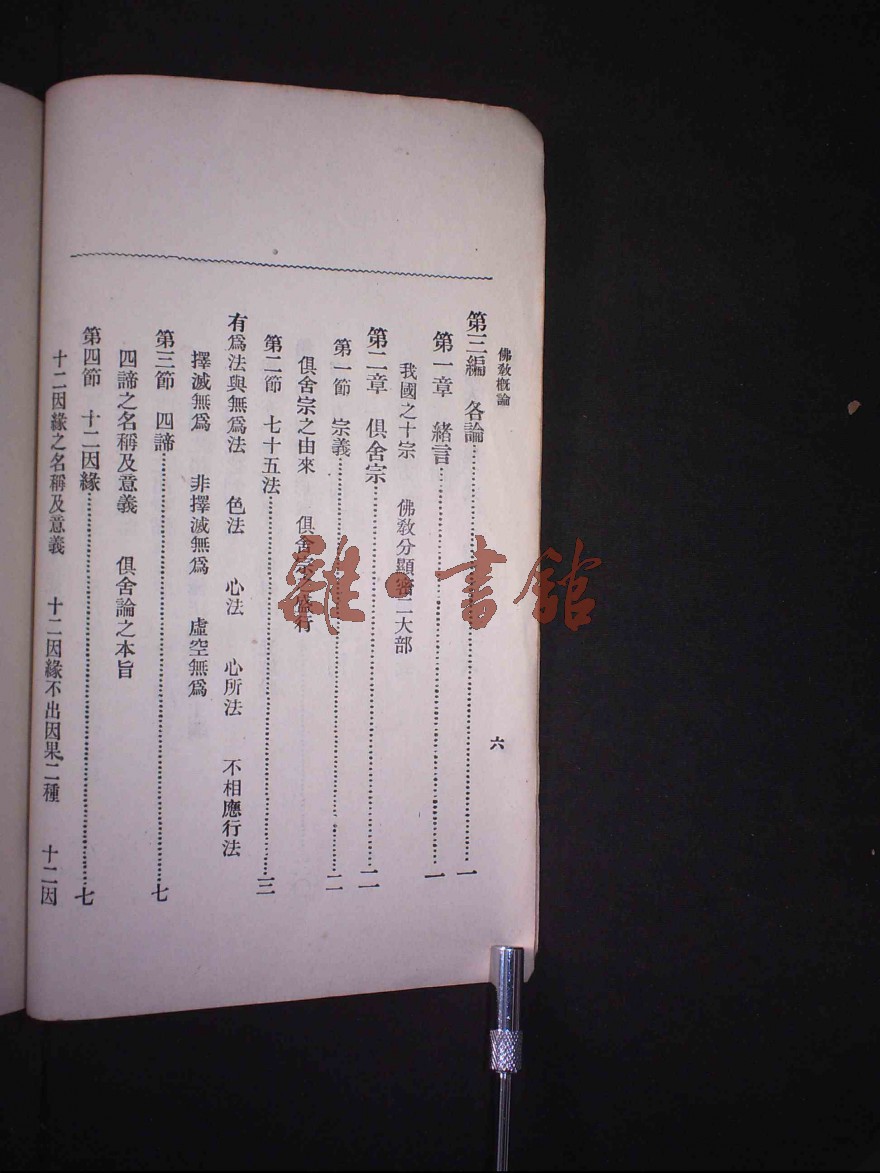 佛教概論
六
第三編　各論……一
第一章　緒言……一
我國之十宗　佛教分顯密二大部
第二章　俱舍宗……二
第一節　宗義……二
俱舍宗之由來　俱舍宗之盛行
第二節　七十五法……三
有爲法與無爲法　色法　心法　心所法　不相應行法
擇滅無爲　非擇滅無爲　虛空無爲
第三節　四諦……七
四諦之名稱及意義　俱舍論之本旨
第四節　十二因緣……七
十二因緣之名稱及意義　十二因緣不出因果二種　十二因
雜·書館